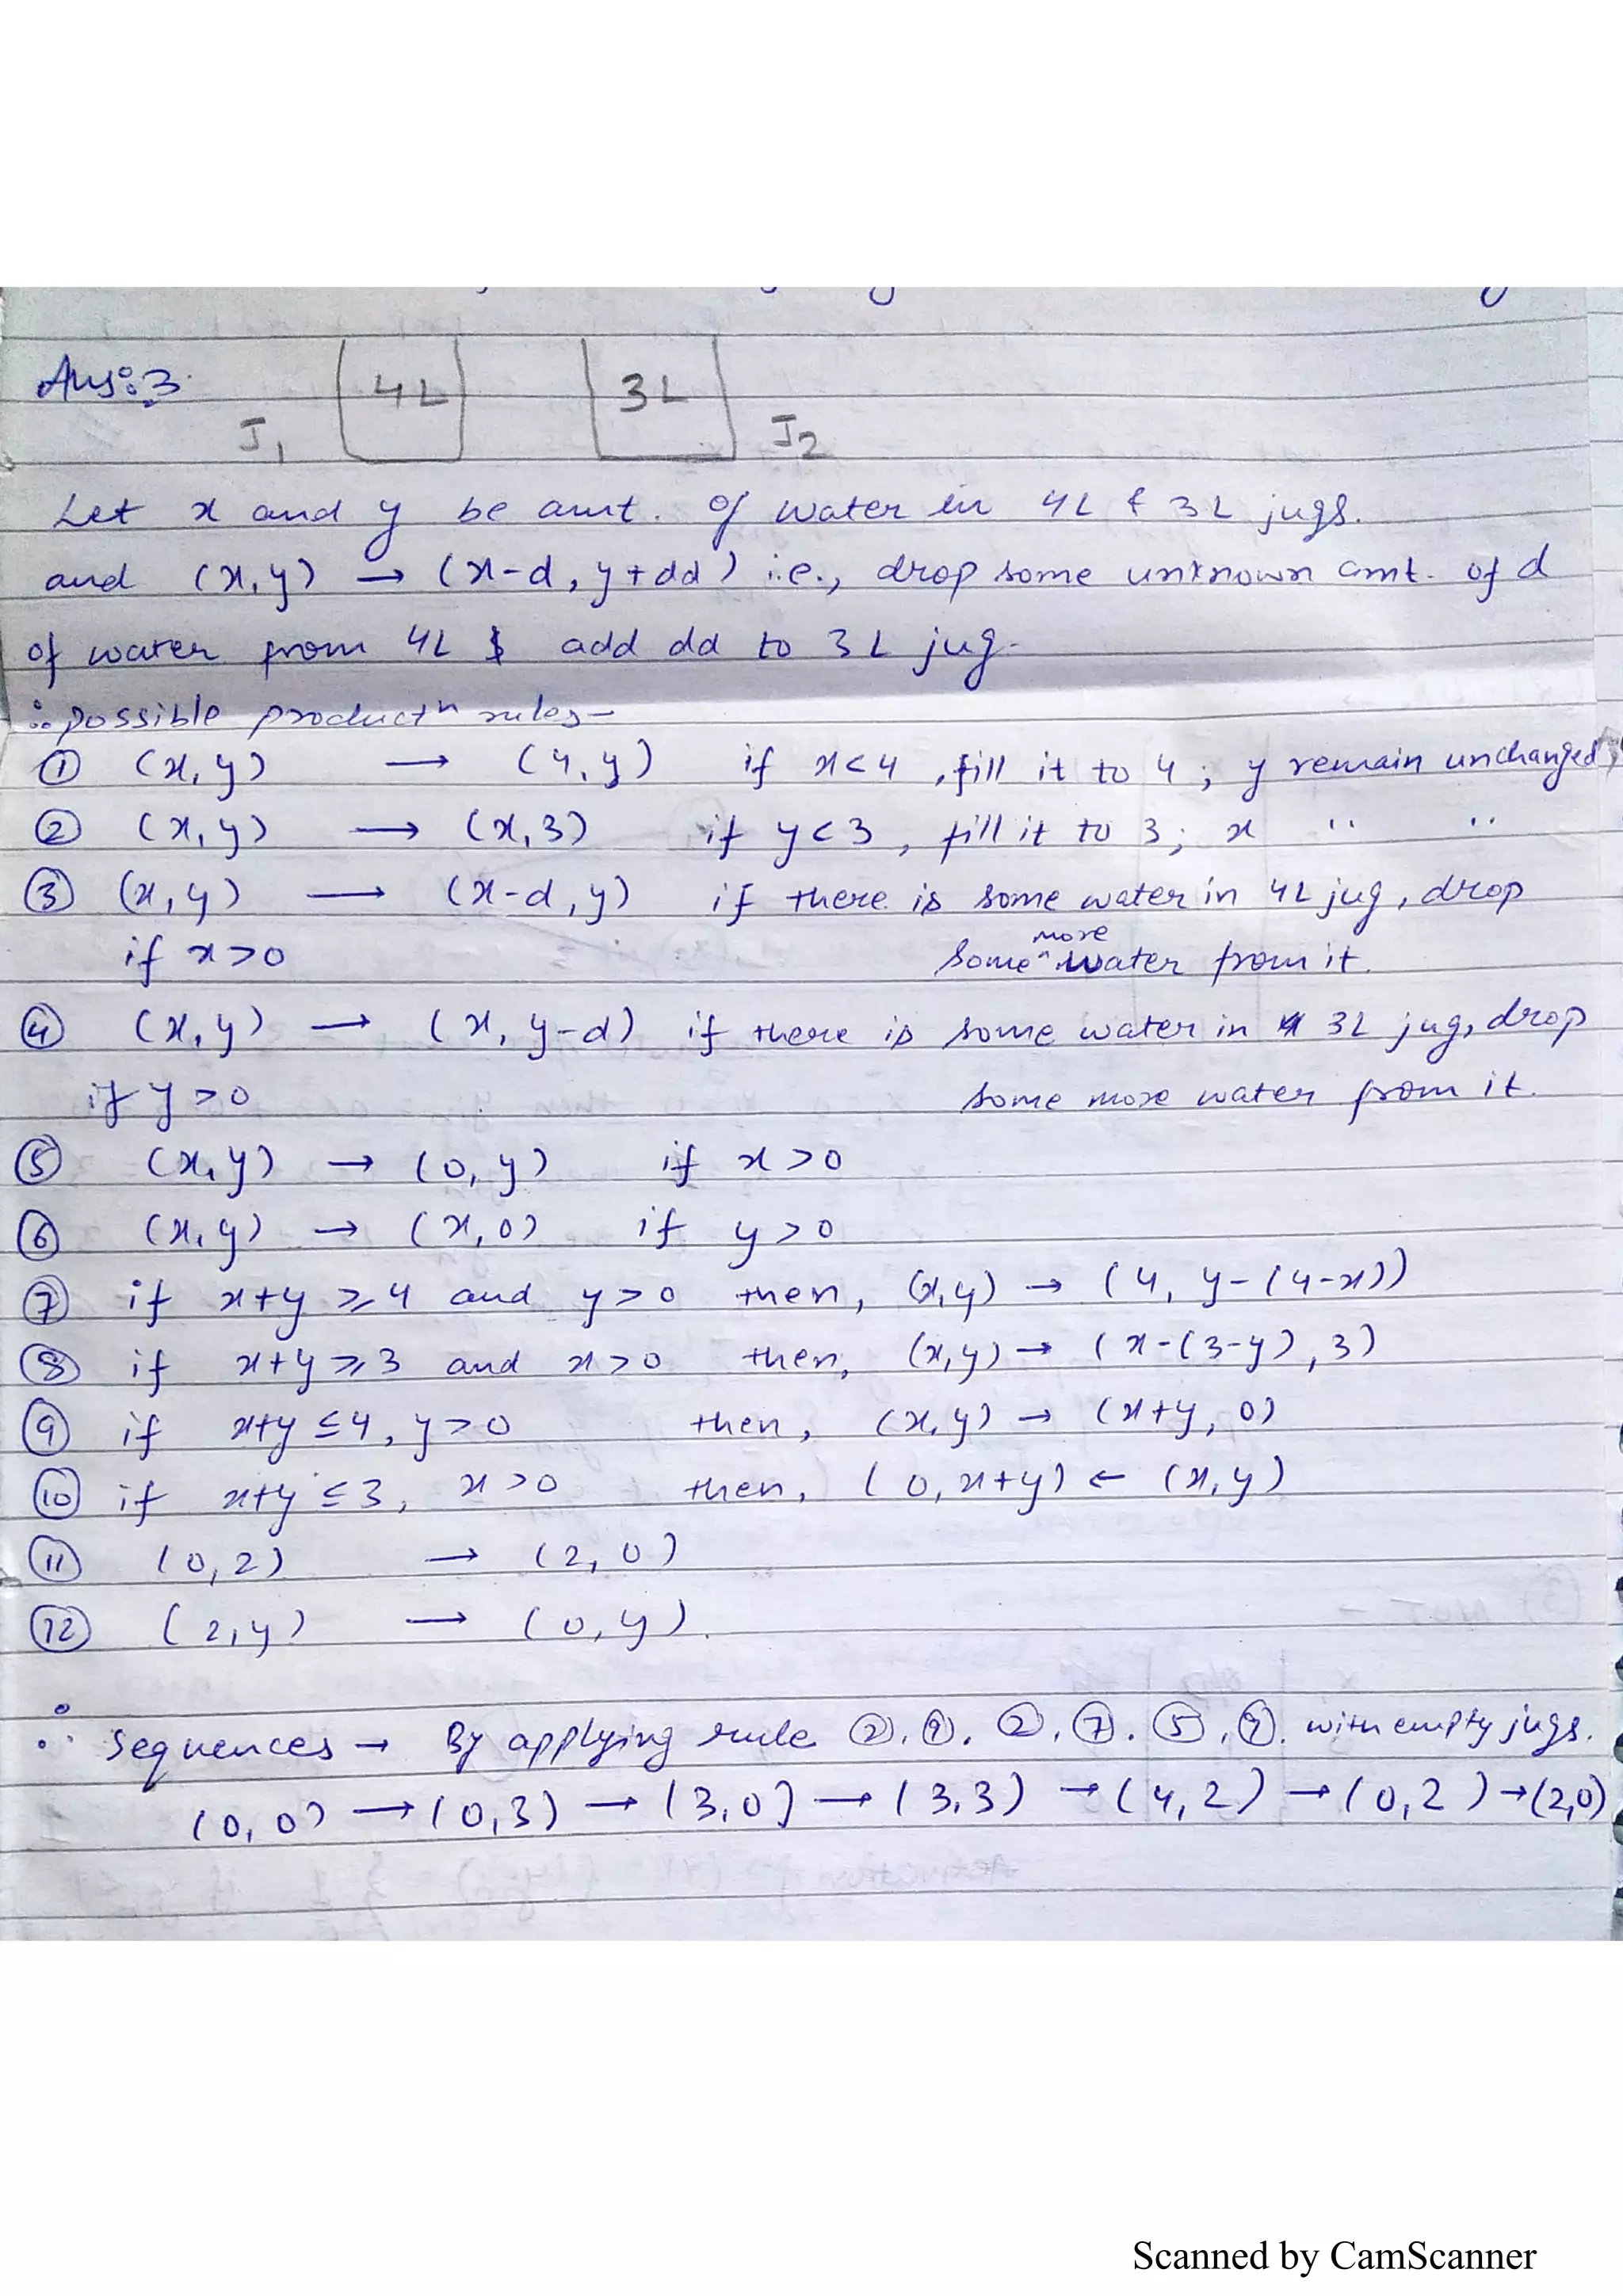 Ans:3.
4L 3L
J1 J2
Let x and y be amt. of water in 4L & 3L jugs.
and (x,y) → (x-d, y+dd) i.e., drop some unknown amt. of d
of water from 4L & add dd to 3L jug.
∴ possible productⁿ rules-
① (x,y) → (4,y) if x<4, fill it to 4; y remain unchanged,
② (x,y) → (x,3) if y<3, fill it to 3; x '' ''
③ (x,y) → (x-d,y) if there is some water in 4L jug, drop
if x>0 some ^more water from it.
④ (x,y) → (x, y-d) if there is some water in 3L jug, drop
if y>0 some more water from it.
⑤ (x,y) → (0,y) if x>0
⑥ (x,y) → (x,0) if y>0
⑦ if x+y ≥ 4 and y>0 then, (x,y) → (4, y-(4-x))
⑧ if x+y ≥ 3 and x>0 then, (x,y) → (x-(3-y), 3)
⑨ if x+y ≤ 4, y>0 then, (x,y) → (x+y, 0)
⑩ if x+y ≤ 3, x>0 then, (0, x+y) ← (x,y)
⑪ (0,2) → (2,0)
⑫ (2,y) → (0,y).
∴ Sequences → By applying rule ②, ⑨, ②, ⑦, ⑤, ⑨. with empty jugs.
(0,0) → (0,3) → (3,0] → (3,3) → (4,2) → (0,2) → (2,0)
Scanned by CamScanner